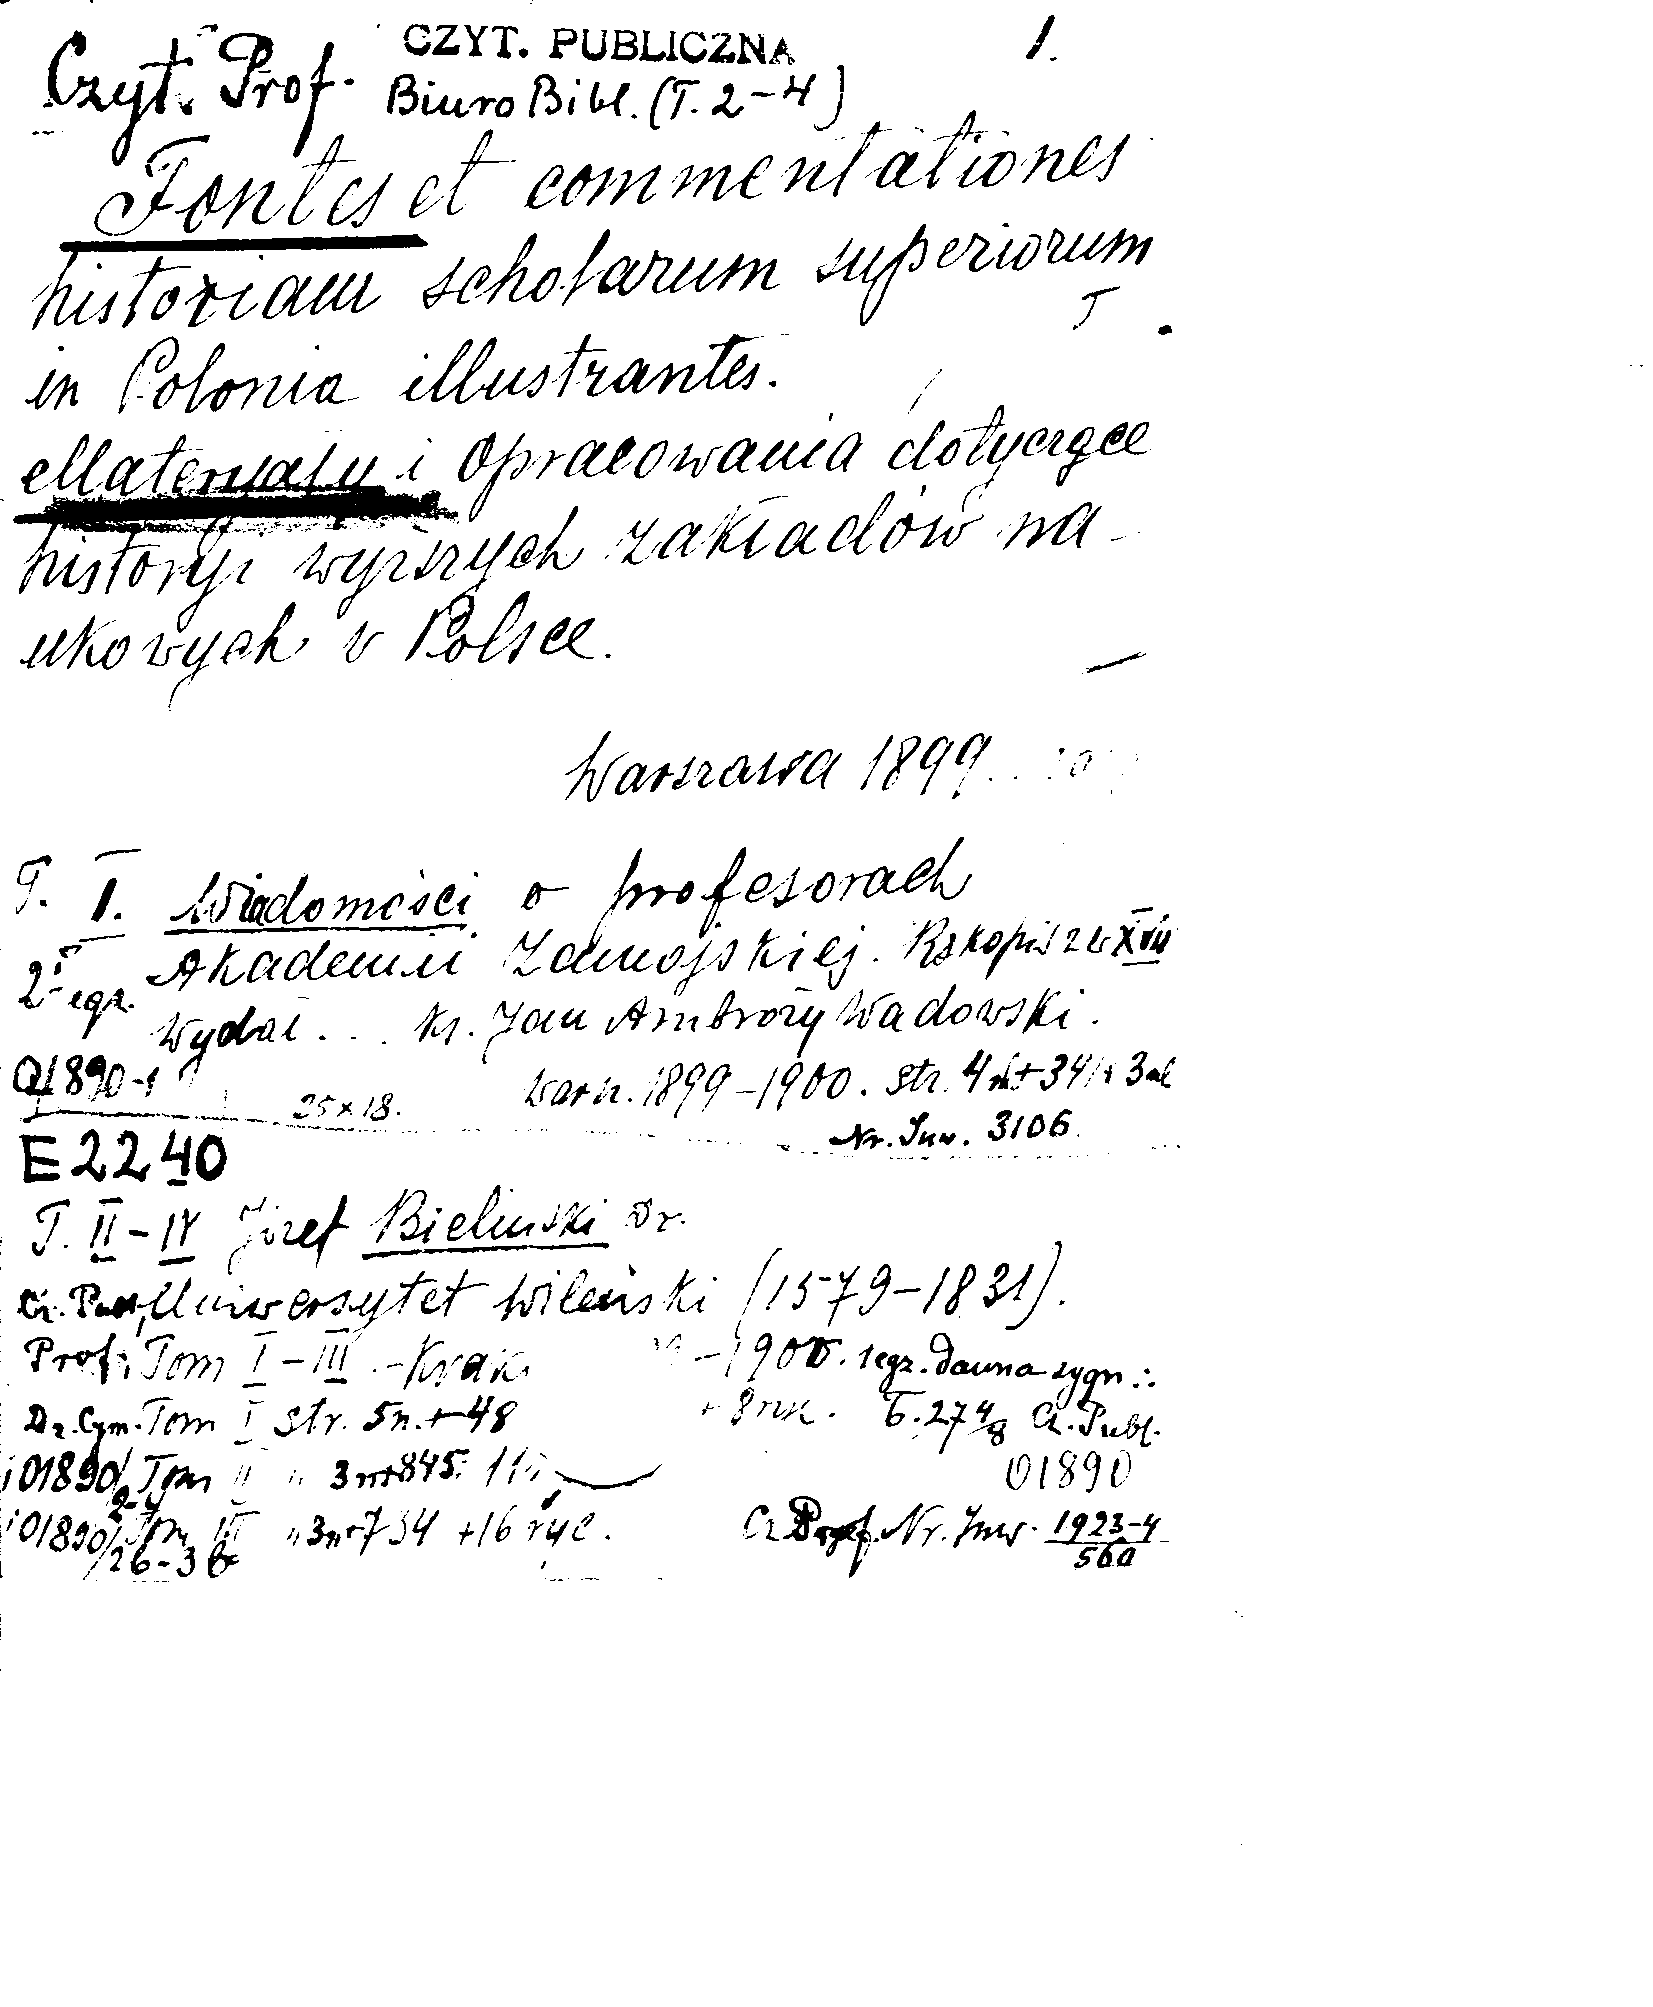 1.
Czyt. Prof. CZYT. PUBLICZNA
Biuro Bibl. (T. 2-4)
Fontes et commentationes
historiam scholarum superiorum
in Polonia illustrantes.
Materyały i opracowania dotyczące
historyi wyższych zakładów na-
ukowych w Polsce.
Warszawa 1899
T. I. Wiadomości o profesorach
Akademii Zamojskiej. Rękopis z w XVII
2 egz.
wydał... ks. Jan Ambroży Wadowski.
O1890-1
25x18. Warsz. 1899-1900. str. 4 nl + 341 + 3 nl
Nr. Inw. 3106
E2240
T. II-IV Józef Bieliński Dr.
Uniwersytet Wileński (1579-1831).
Prof. Tom I-III. - Krak. -1900. 1 egz. dawna sygn.:
Tom I str. 5n. + 48 + 8 nlk. Cz. Publ.
O1890 Tom II " 3n+845. O1890
O1890 Tom III " 3n+734 +16 ryc. Cz Prof. Nr. Inw. 1923-4
/26-3b 560